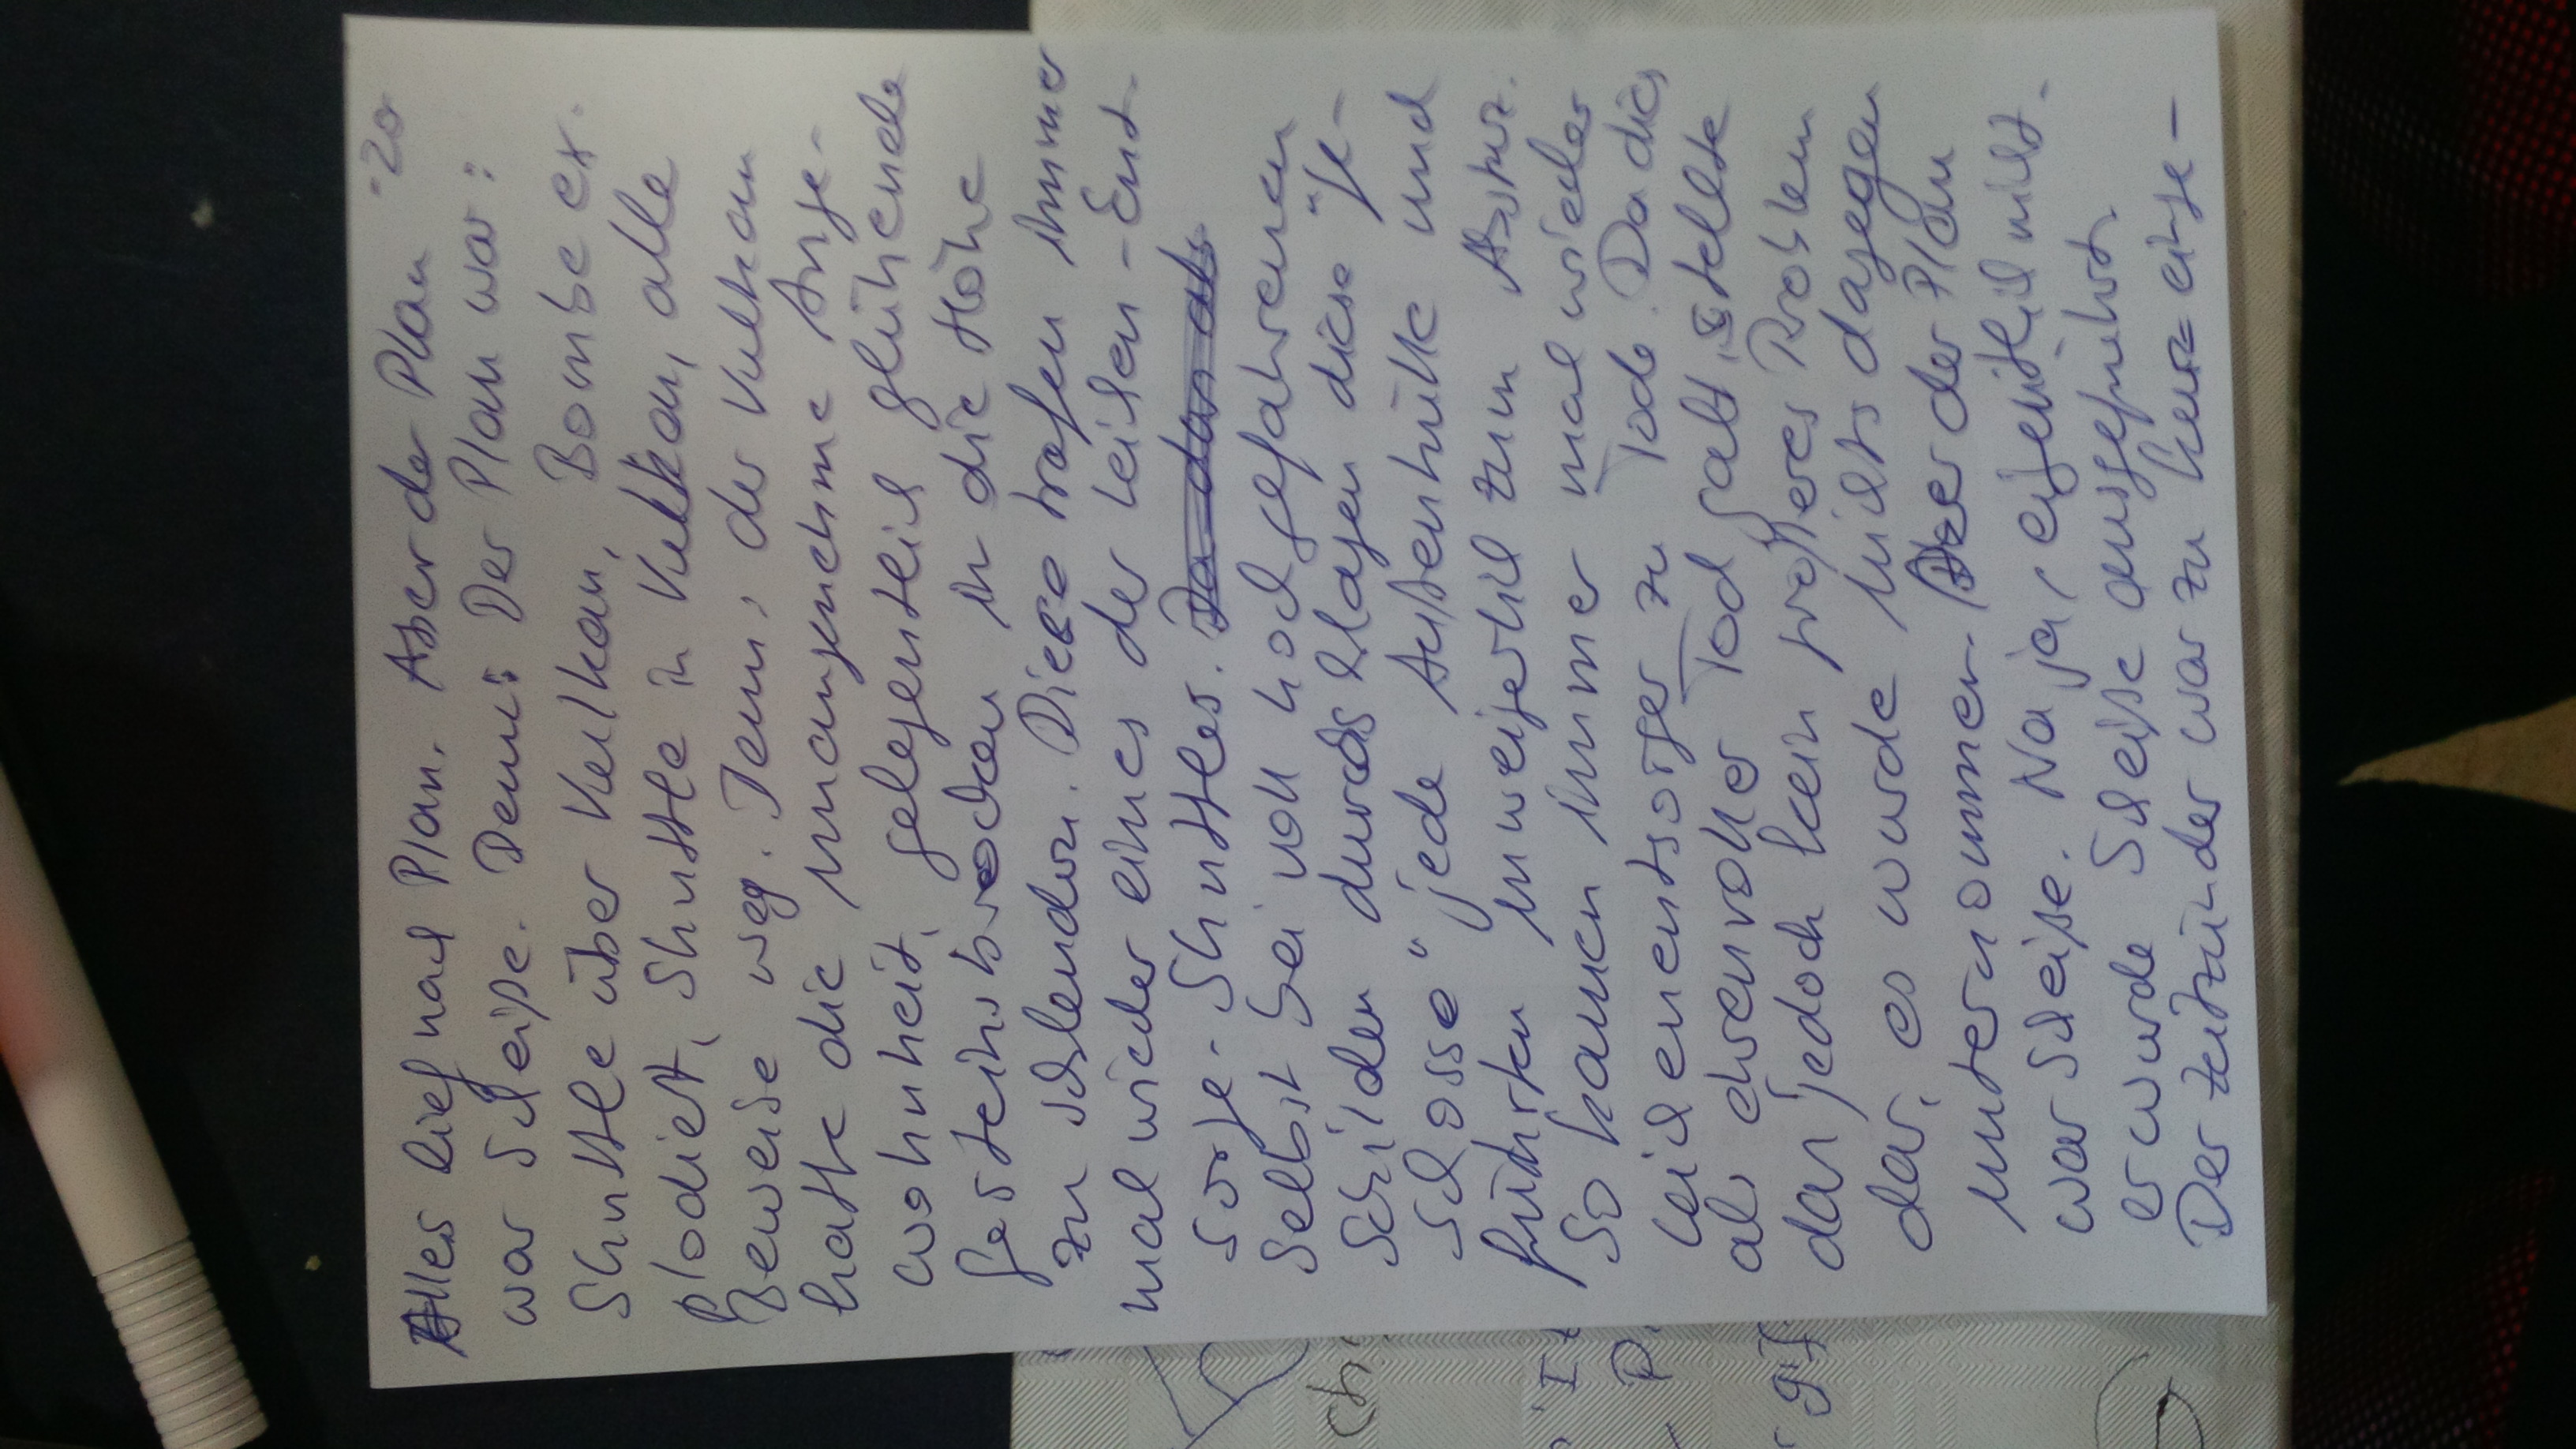 -20
Alles lief nach Plan. Aber der Plan
war Scheiße. Denn: Der Plan war:
Shuttle über Vulkan, Bombe ex-
plodiert, Shuttle in Vulkan, alle
Beweise weg. Denn, der Vulkan
hatte die unangenehme Ange-
wohnheit, gelegentlich glühende
Gesteinsbrocken in die Höhe
zu schleudern. Diese trafen immer
mal wieder eines der Leichen-Ent-
sorge-Shuttles. Da das als
Selbst bei voll hochgefahrenen
Schilden durchschlagen diese "Ge-
schosse" jede Außenhülle und
führten unweigerlich zum Absturz.
So kamen immer mal wieder
Leichenentsorger zu Tode. Da dies
als ehrenvoller Tod galt, stellte
das jedoch kein größeres Problem
dar, es wurde nichts dagegen
unternommen. Aber der Plan
war Scheiße. Na ja, eigentlich nicht.
er wurde Scheiße ausgeführt.
Der Zeitzünder war zu kurz einge-
ch
I
P
gif